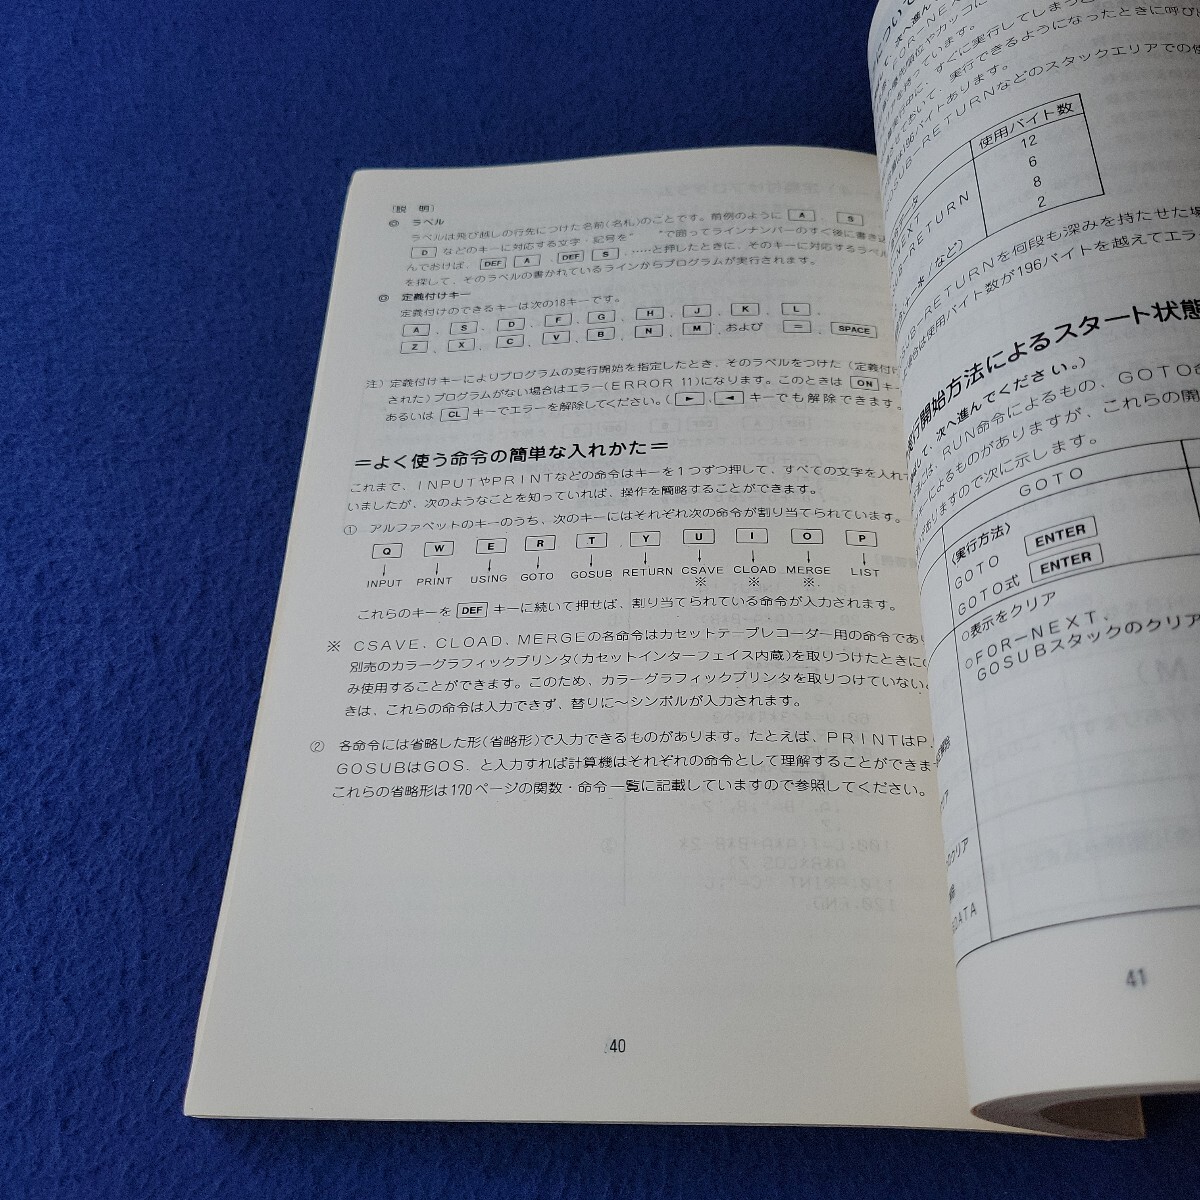 〔説 明〕
◎ ラベル
ラベルは飛び越しの行先につけた名前(名札)のことです。前例のように A 、 S 、
D などのキーに対応する文字・記号を“ ”で囲ってラインナンバーのすぐ後に書き込
んでおけば、 DEF A 、 DEF S 、……と押したときに、そのキーに対応するラベル
を探して、そのラベルの書かれているラインからプログラムが実行されます。
◎ 定義付けキー
定義付けのできるキーは次の18キーです。
A 、 S 、 D 、 F 、 G 、 H 、 J 、 K 、 L 、
Z 、 X 、 C 、 V 、 B 、 N 、 M 、および = 、 SPACE
注) 定義付けキーによりプログラムの実行開始を指定したとき、そのラベルをつけた (定義付け
された) プログラムがない場合はエラー(ERROR 11)になります。このときは ON キー
あるいは CL キーでエラーを解除してください。( ► 、 ◄ キーでも解除できます。
=よく使う命令の簡単な入れかた=
これまで、INPUTやPRINTなどの命令はキーを1つずつ押して、すべての文字を入れて
いましたが、次のようなことを知っていれば、操作を簡略することができます。
① アルファベットのキーのうち、次のキーにはそれぞれ次の命令が割り当てられています。
Q W E R T Y U I O P
↓ ↓ ↓ ↓ ↓ ↓ ↓ ↓ ↓ ↓
INPUT PRINT USING GOTO GOSUB RETURN CSAVE CLOAD MERGE LIST
※ ※ ※
これらのキーを DEF キーに続いて押せば、割り当てられている命令が入力されます。
※ CSAVE、CLOAD、MERGEの各命令はカセットテープレコーダー用の命令であり
別売のカラーグラフィックプリンタ(カセットインターフェイス内蔵)を取りつけたときに
み使用することができます。このため、カラーグラフィックプリンタを取りつけていない
きは、これらの命令は入力できず、替りに〜シンボルが入力されます。
② 各命令には省略した形(省略形)で入力できるものがあります。たとえば、PRINTはP.
GOSUBはGOS. と入力すれば計算機はそれぞれの命令として理解することができま
これらの省略形は170ページの関数・命令一覧に記載していますので参照してください。
40
すぐに実行してしまう
実行できるようになったときに呼び
は196バイトあります。
GOSUB−RETURNなどのスタックエリアでの使
使用バイト数
データ 12
NEXT 6
−RETURN 8
など) 2
SUB−RETURNを何段も深みを持たせた場
場合は使用バイト数が196バイトを越えてエラー
行開始方法によるスタート状態
次へ進んでください。)
には、RUN命令によるもの、GOTO命
によるものがありますが、これらの開
ありますので次に示します。
GOTO
〈実行方法〉
GOTO ENTER
GOTO式 ENTER
○表示をクリア
○FOR−NEXT、
GOSUBスタックのクリア
クリア
DATA
41